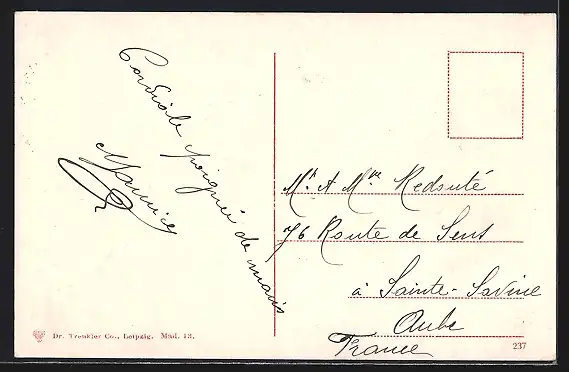 Cordiale poignée de mains
Maurice
Mr & Mme Redouté
76 Route de Sens
à Sainte-Savine
Aube
France
Dr. Trenkler Co., Leipzig. Mad. 13.
237